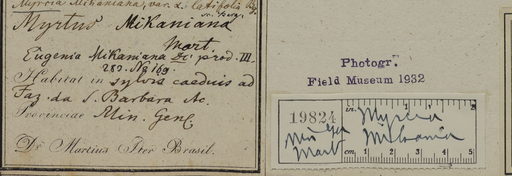 Myrcia Mikaniana, var. α. latifolia Bg.
Myrtus Mikaniana
Mart
Eugenia Mikaniana DC prod. III.
283. No 169.
Habitat in sylvis caeduis ad
Faz. da S. Barbara &c.
Provinciae Min. Gen.
Dr Martius Iter Brasil.
Photogr.
Field Museum 1932
19824
in. 1 2
Myrcia
Mikania
Mart
cm. 1 2 3 4 5